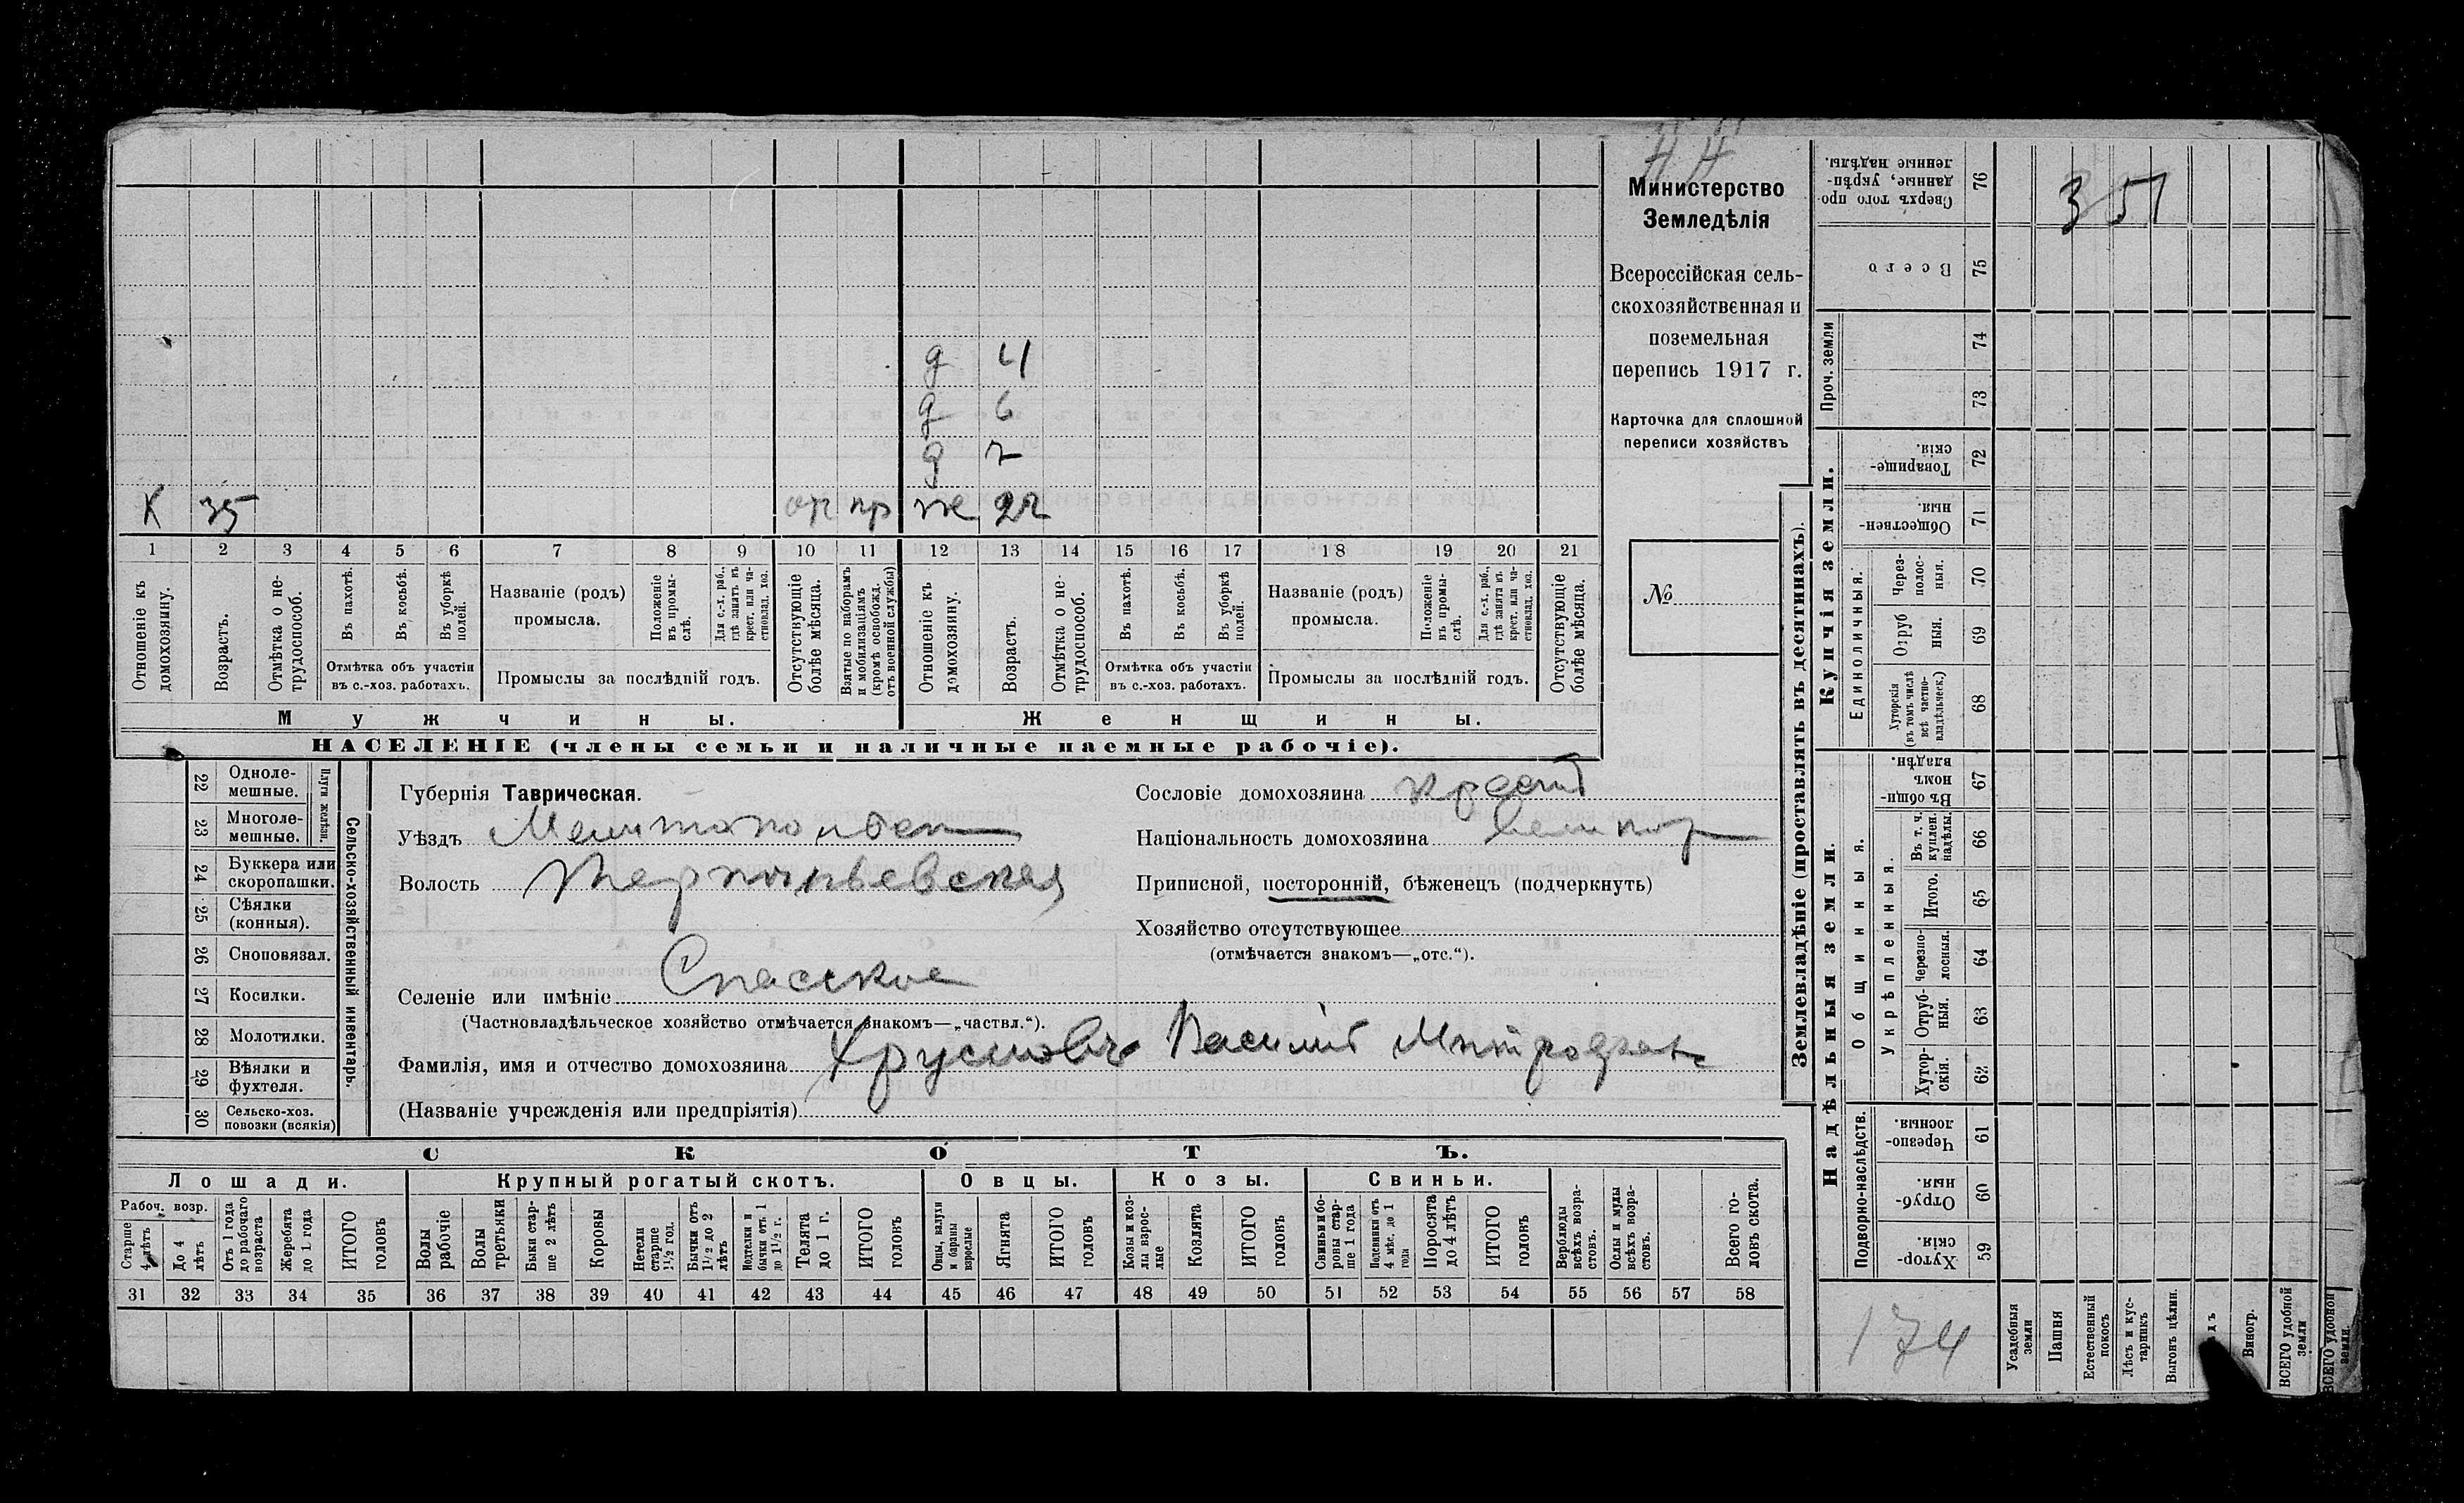 Н Н
Министерство
Земледѣлія
Всероссійская сель-
скохозяйственная и
поземельная
перепись 1917 г.
Карточка для сплошной
переписи хозяйствъ
№
д 4
д 6
д 7
К 35 пр же 27
1 2 3 4 5 6 7 8 9 10 11 12 13 14 15 16 17 18 19 20 21
Отношеніе къ домохозяину.
Возрастъ.
Отмѣтка о не-трудоспособ.
Въ пахотѣ.
Въ косьбѣ.
Въ уборкѣ полей.
Отмѣтка объ участіи
въ с.-хоз. работахъ.
Названіе (родъ)
промысла.
Положеніе въ промы-слѣ.
Для с.-х. раб., гдѣ занятъ въ крест. или ча-стновлад. хоз.
Промыслы за послѣдній годъ.
Отсутствующіе болѣе мѣсяца.
Взятые по наборамъ и мобилизаціямъ (кромѣ освобожд. отъ военной службы)
Отношеніе къ домохозяину.
Возрастъ.
Отмѣтка о не-трудоспособ.
Въ пахотѣ.
Въ косьбѣ.
Въ уборкѣ полей.
Отмѣтка объ участіи
въ с.-хоз. работахъ.
Названіе (родъ)
промысла.
Положеніе въ промы-слѣ.
Для с.-х. раб., гдѣ занята въ крест. или ча-стновлад. хоз.
Промыслы за послѣдній годъ.
Отсутствующіе болѣе мѣсяца.
Мужчины.
Женщины.
НАСЕЛЕНІЕ (члены семьи и наличные наемные рабочіе).
22 Одноле-мешные.
23 Многоле-мешные.
Плуги желѣзн.
24 Буккера или скоропашки.
25 Сѣялки (конныя).
26 Сноповязал.
27 Косилки.
28 Молотилки.
29 Вѣялки и фухтеля.
30 Сельско-хоз. повозки (всякія)
Сельско-хозяйственный инвентарь.
Губернія Таврическая.
Уѣздъ Мелитопольск
Волость Терпеньевская
Селеніе или имѣніе Спасское
(Частновладѣльческое хозяйство отмѣчается знакомъ—„частвл.“).
Фамилія, имя и отчество домохозяина Василій Митрофан
(Названіе учрежденія или предпріятія)
Сословіе домохозяина крест
Національность домохозяина великор
Приписной, посторонній, бѣженецъ (подчеркнуть)
Хозяйство отсутствующее
(отмѣчается знакомъ—„отс.“).
СКОТЪ.
Лошади.
Крупный рогатый скотъ.
Овцы.
Козы.
Свиньи.
Рабоч. возр.
Старше 4 лѣтъ
До 4 лѣтъ
Отъ 1 года до рабочаго возраста
Жеребята до 1 года
ИТОГО головъ
Волы рабочіе
Волы третьяки
Быки стар-ше 2 лѣтъ
Коровы
Нетели старше 1½ год.
Бычки отъ 1½ до 2 лѣтъ
Подтелки и бычки отъ 1 до 1½ г.
Телята до 1 г.
ИТОГО головъ
Овцы, валухи и бараны взрослые
Ягнята
ИТОГО головъ
Козы и коз-лы взрос-лые
Козлята
ИТОГО головъ
Свиньи бо-ровы стар-ше 1 года
Подсвинки отъ 4 мѣс. до 1 года
Поросята до 4 лѣтъ
ИТОГО головъ
Верблюды всѣхъ возра-стовъ.
Ослы и мулы всѣхъ возра-стовъ.
Всего го-ловъ скота.
31 32 33 34 35 36 37 38 39 40 41 42 43 44 45 46 47 48 49 50 51 52 53 54 55 56 57 58
Землевладѣніе (проставлять въ десятинахъ).
Купчія земли.
Надѣльныя земли.
Сверхъ того про-данные, укрѣп-ленные надѣлы. 76
351
Всего 75
Проч. земли
74
73
Товарище-скія. 72
Обществен-ныя. 71
Единоличныя.
Через-полос-ныя. 70
Отруб ныя. 69
Хуторскія (въ томъ числѣ всѣ частно-владѣльческ.) 68
Общинныя.
Въ общи-номъ владѣн. 67
Укрѣпленныя.
Въ т. ч. куплен. надѣлы. 66
Итого. 65
Черезпо-лосныя. 64
Отруб-ныя. 63
Хутор-скія. 62
Подворно-наслѣдств.
Черезпо-лосныя. 61
Отруб-ныя. 60
Хутор-скія. 59
174
Усадебныя земли
Пашня
Естественный покосъ
Лѣсъ и кус-тарникъ
Выгонъ цѣлин.
Виногр.
ВСЕГО удобной земли
ВСЕГО удобной земли.